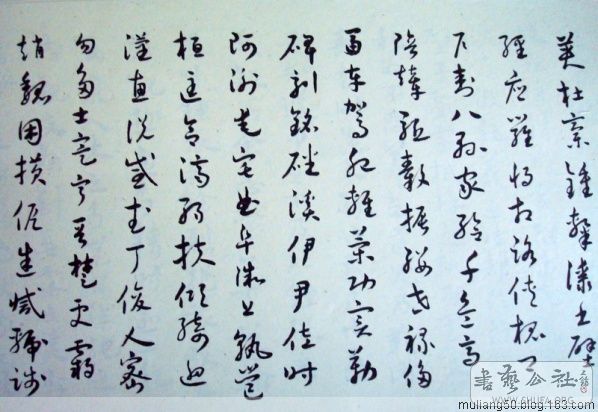 英杜稾鍾隸漆書壁
經府羅將相路俠槐卿
户封八縣家給千兵高
陪輦驅轂振纓世祿侈
富車駕肥輕策功實勒
碑刻銘磻溪伊尹佐時
阿衡奄宅曲阜微旦孰營
桓匡合濟弱扶傾綺迴
漢惠說感武丁俊乂密
勿多士寔寧晉楚更霸
趙魏困橫假途滅虢踐
書藝公社
WWW.SHUFA.ORG
muliang50.blog.163.com